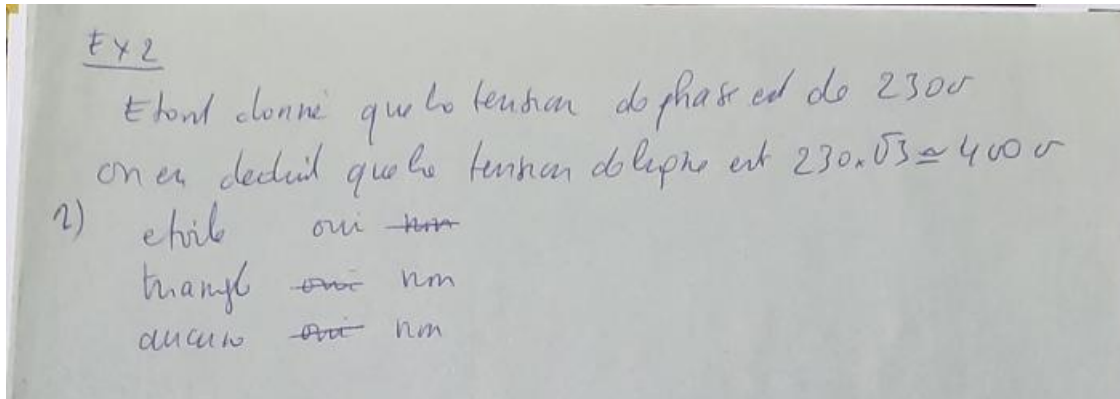 EX2
Etant donné que la tension de phase est de 230v
on en deduit que la tension de ligne est 230.√3≃400v
1) etoile oui non
triangle oui non
aucun oui non